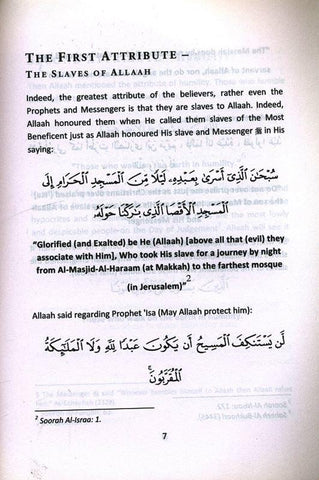 THE FIRST ATTRIBUTE –
THE SLAVES OF ALLAAH
Indeed, the greatest attribute of the believers, rather even the
Prophets and Messengers is that they are slaves to Allaah. Indeed,
Allaah honoured them when He called them slaves of the Most
Beneficent just as Allaah honoured His slave and Messenger ﷺ in His
saying:
سُبْحَٰنَ ٱلَّذِىٓ أَسْرَىٰ بِعَبْدِهِۦ لَيْلًا مِّنَ ٱلْمَسْجِدِ ٱلْحَرَامِ إِلَى
ٱلْمَسْجِدِ ٱلْأَقْصَا ٱلَّذِى بَٰرَكْنَا حَوْلَهُۥ
“Glorified (and Exalted) be He (Allaah) [above all that (evil) they
associate with Him], Who took His slave for a journey by night
from Al-Masjid-Al-Haraam (at Makkah) to the farthest mosque
(in Jerusalem)”2
Allaah said regarding Prophet 'Isa (May Allaah protect him):
لَّن يَسْتَنكِفَ ٱلْمَسِيحُ أَن يَكُونَ عَبْدًا لِّلَّهِ وَلَا ٱلْمَلَٰٓئِكَةُ
ٱلْمُقَرَّبُونَ ۚ
2 Soorah Al-Israa: 1.
7